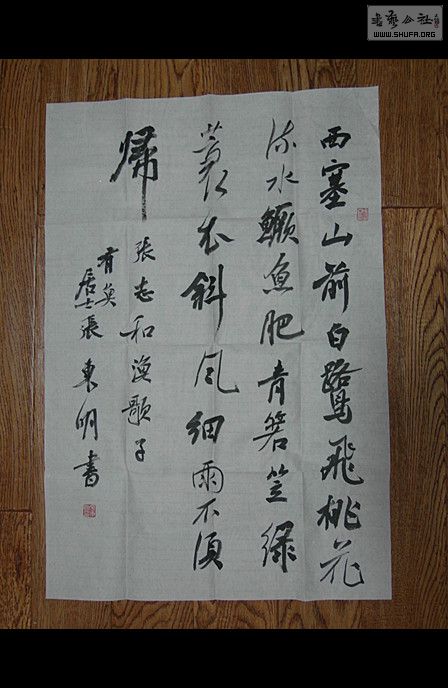 書藝公社
WWW.SHUFA.ORG
西塞山前白鷺飛桃花
流水鱖魚肥青箬笠綠
蓑衣斜風細雨不須
歸
張志和漁歌子
有
居士張東明書